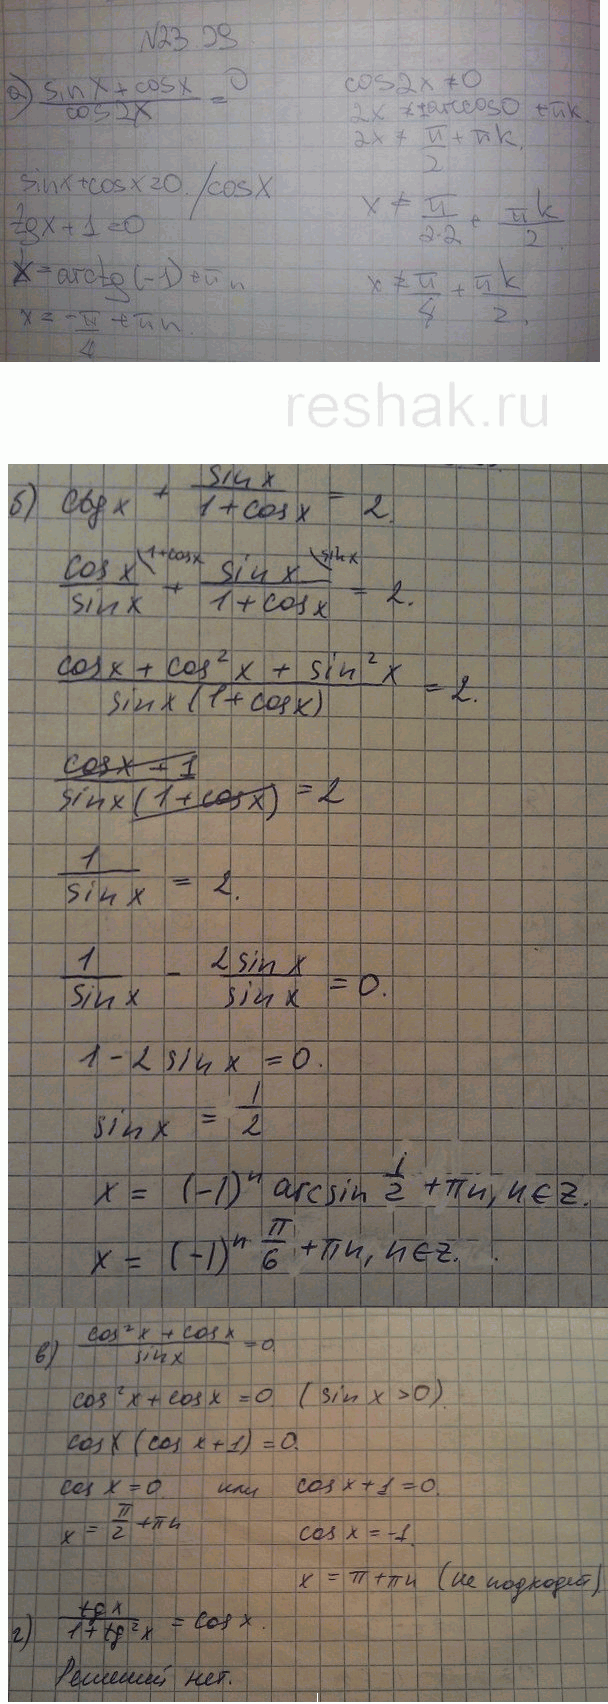 N23 09
а) (sin x + cos x)/(cos 2x) = 0
cos 2x ≠ 0
2x ≠ ±arccos 0 + πk
2x ≠ π/2 + πk
sin x + cos x = 0. /cos x
tg x + 1 = 0
x ≠ π/(2·2) + πk/2
x = arctg(-1) + πn
x ≠ π/4 + πk/2.
x = -π/4 + πn.
reshak.ru
б) ctg x + sin x/(1 + cos x) = 2.
cos x/sin x \1+cos x + sin x/(1 + cos x) \sin x = 2.
(cos x + cos² x + sin² x)/(sin x (1 + cos x)) = 2.
(cos x + 1)/(sin x (1 + cos x)) = 2
1/sin x = 2.
1/sin x - 2 sin x/sin x = 0.
1 - 2 sin x = 0.
sin x = 1/2
x = (-1)ⁿ arcsin 1/2 + πn, n ∈ z.
x = (-1)ⁿ π/6 + πn, n ∈ z.
в) (cos² x + cos x)/sin x = 0
cos² x + cos x = 0 (sin x >0).
cos x (cos x + 1) = 0.
cos x = 0 или cos x + 1 = 0.
x = π/2 + πn
cos x = -1.
x = π + πn (не подходят)
г) tg x/(1 + tg² x) = cos x.
Решений нет.